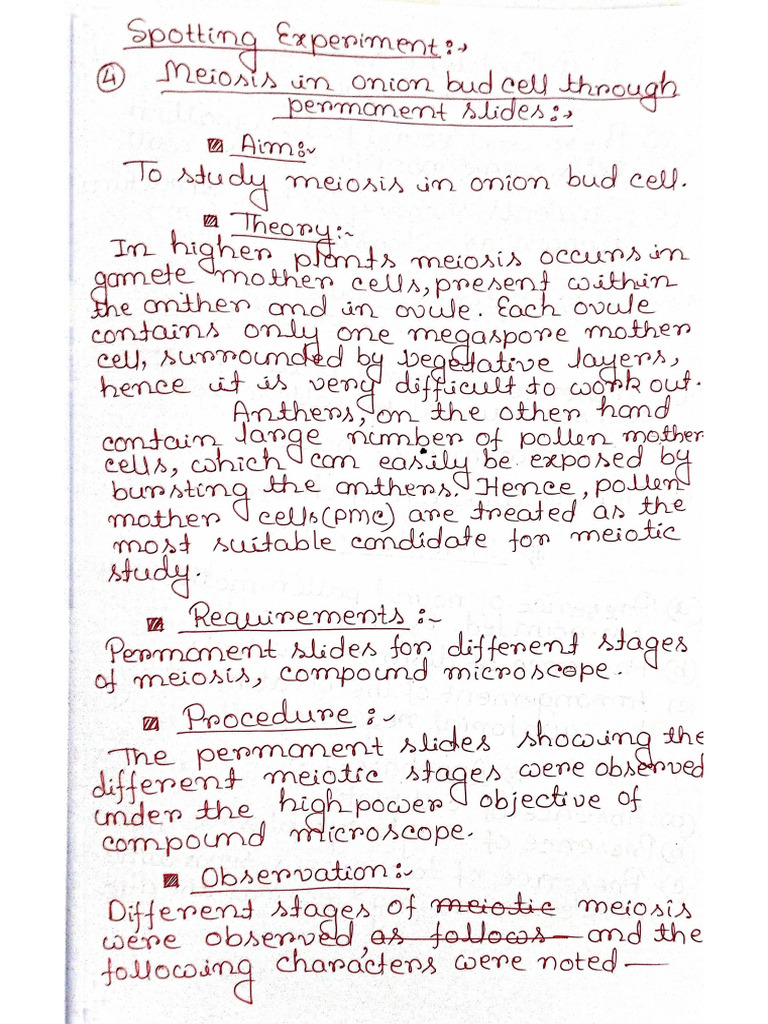 Spotting Experiment:→
④ Meiosis in onion bud cell through
permanent slides:→
Aim:~
To study meiosis in onion bud cell.
Theory:~
In higher plants meiosis occurs in
gamete mother cells, present within
the anther and in ovule. Each ovule
contains only one megaspore mother
cell, surrounded by vegetative layers,
hence it is very difficult to work out.
Anthers, on the other hand
contain large number of pollen mother
cells, which can easily be exposed by
bursting the anthers. Hence, pollen
mother cells (PMC) are treated as the
most suitable candidate for meiotic
study.
Requirements:~
Permanent slides for different stages
of meiosis, compound microscope.
Procedure:~
The permanent slides showing the
different meiotic stages were observed
under the high power objective of
compound microscope.
Observation:~
Different stages of meiotic meiosis
were observed, as follows and the
following characters were noted —